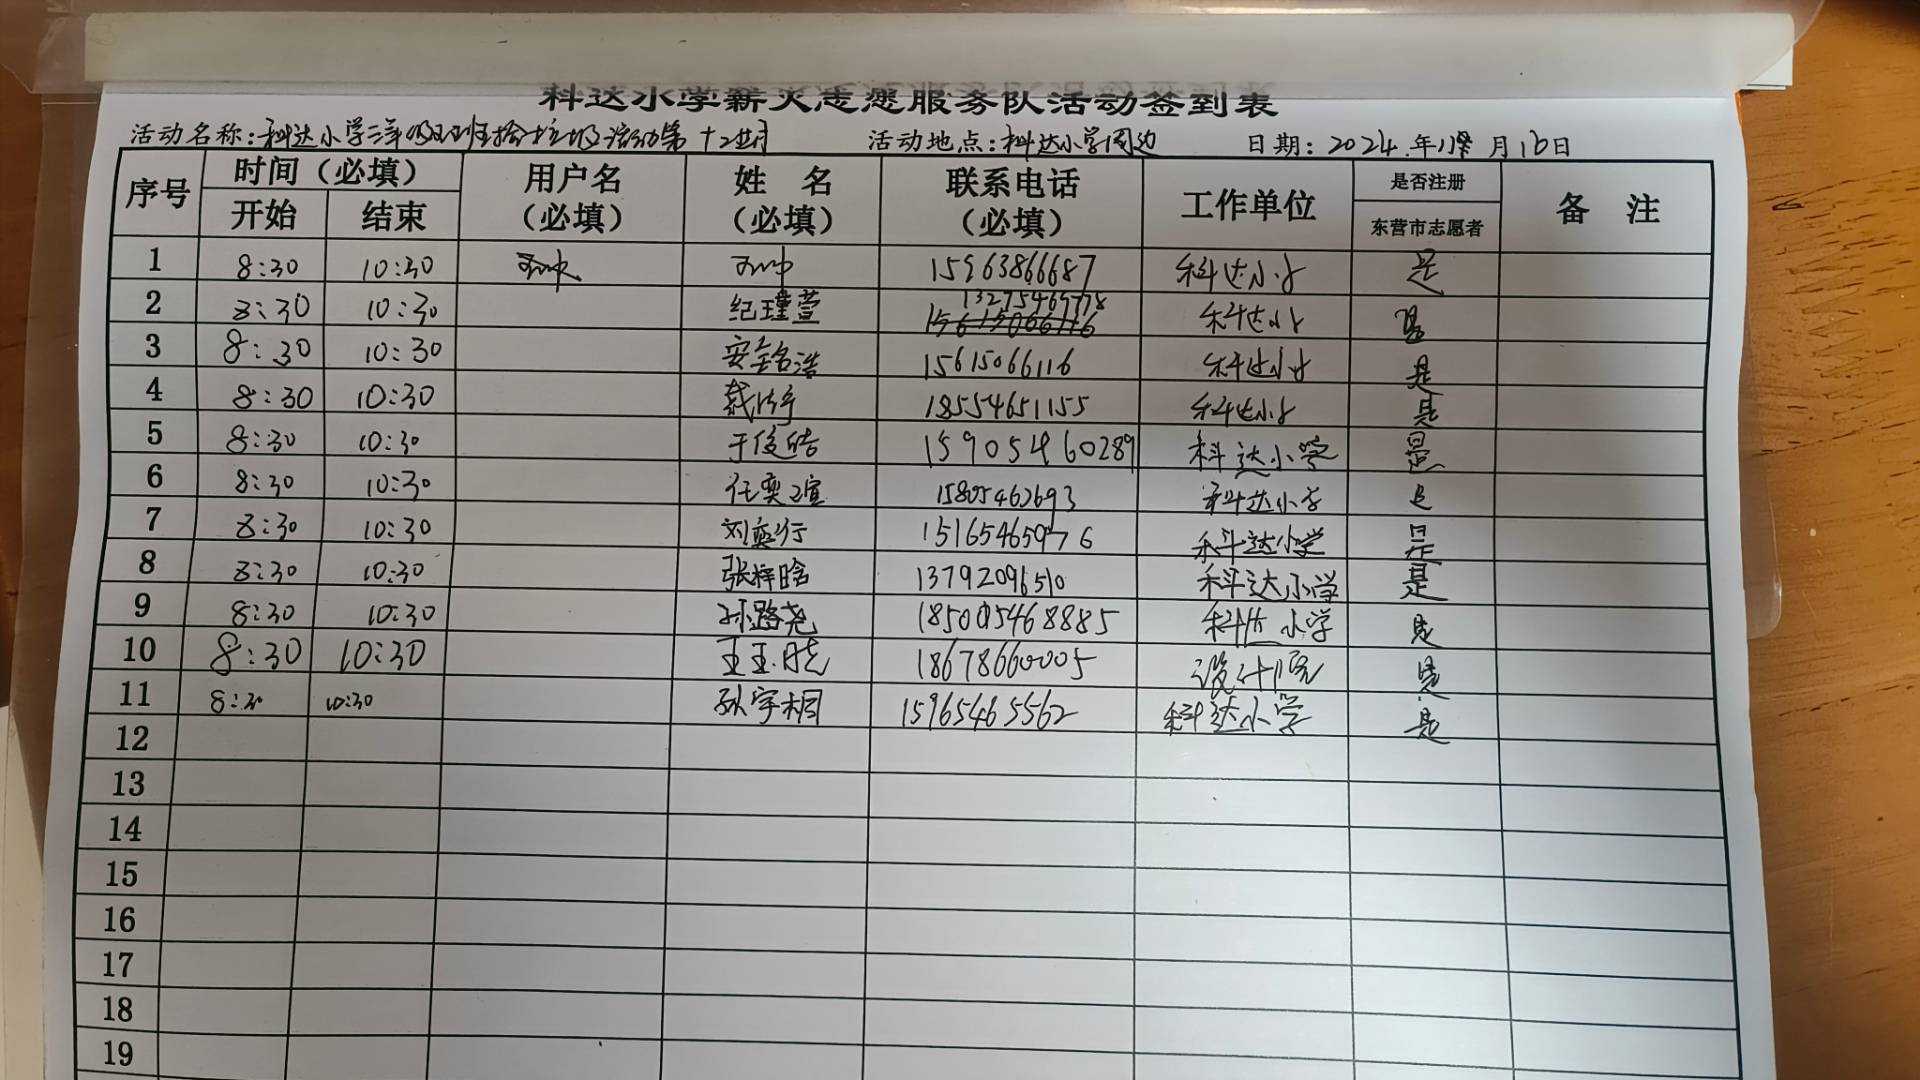 科达小学薪火志愿服务队活动签到表
活动名称：科达小学三年级 班捡垃圾活动第十二 活动地点：科达小学周边 日期：2024.年 月16日
序号 时间（必填） 用户名（必填） 姓 名（必填） 联系电话（必填） 工作单位 是否注册 备 注
开始 结束 东营市志愿者
1 8:30 10:30 15963866687 科达小学 是
2 8:30 10:30 纪瑾萱 13275465778 科达小学 是
15615066116
3 8:30 10:30 安 浩 15615066116 科达小学 是
4 8:30 10:30 18554651155 科达小学 是
5 8:30 10:30 于俊皓 15905460289 科达小学 是
6 8:30 10:30 任奕瑄 15805462693 科达小学 是
7 8:30 10:30 刘奕行 15165465076 科达小学 是
8 8:30 10:30 张梓晗 13792096510 科达小学 是
9 8:30 10:30 孙路尧 科达小学 是
10 8:30 10:30 18678660005 设计院 是
11 8:30 10:30 孙宇桐 15965465562 科达小学 是
12
13
14
15
16
17
18
19